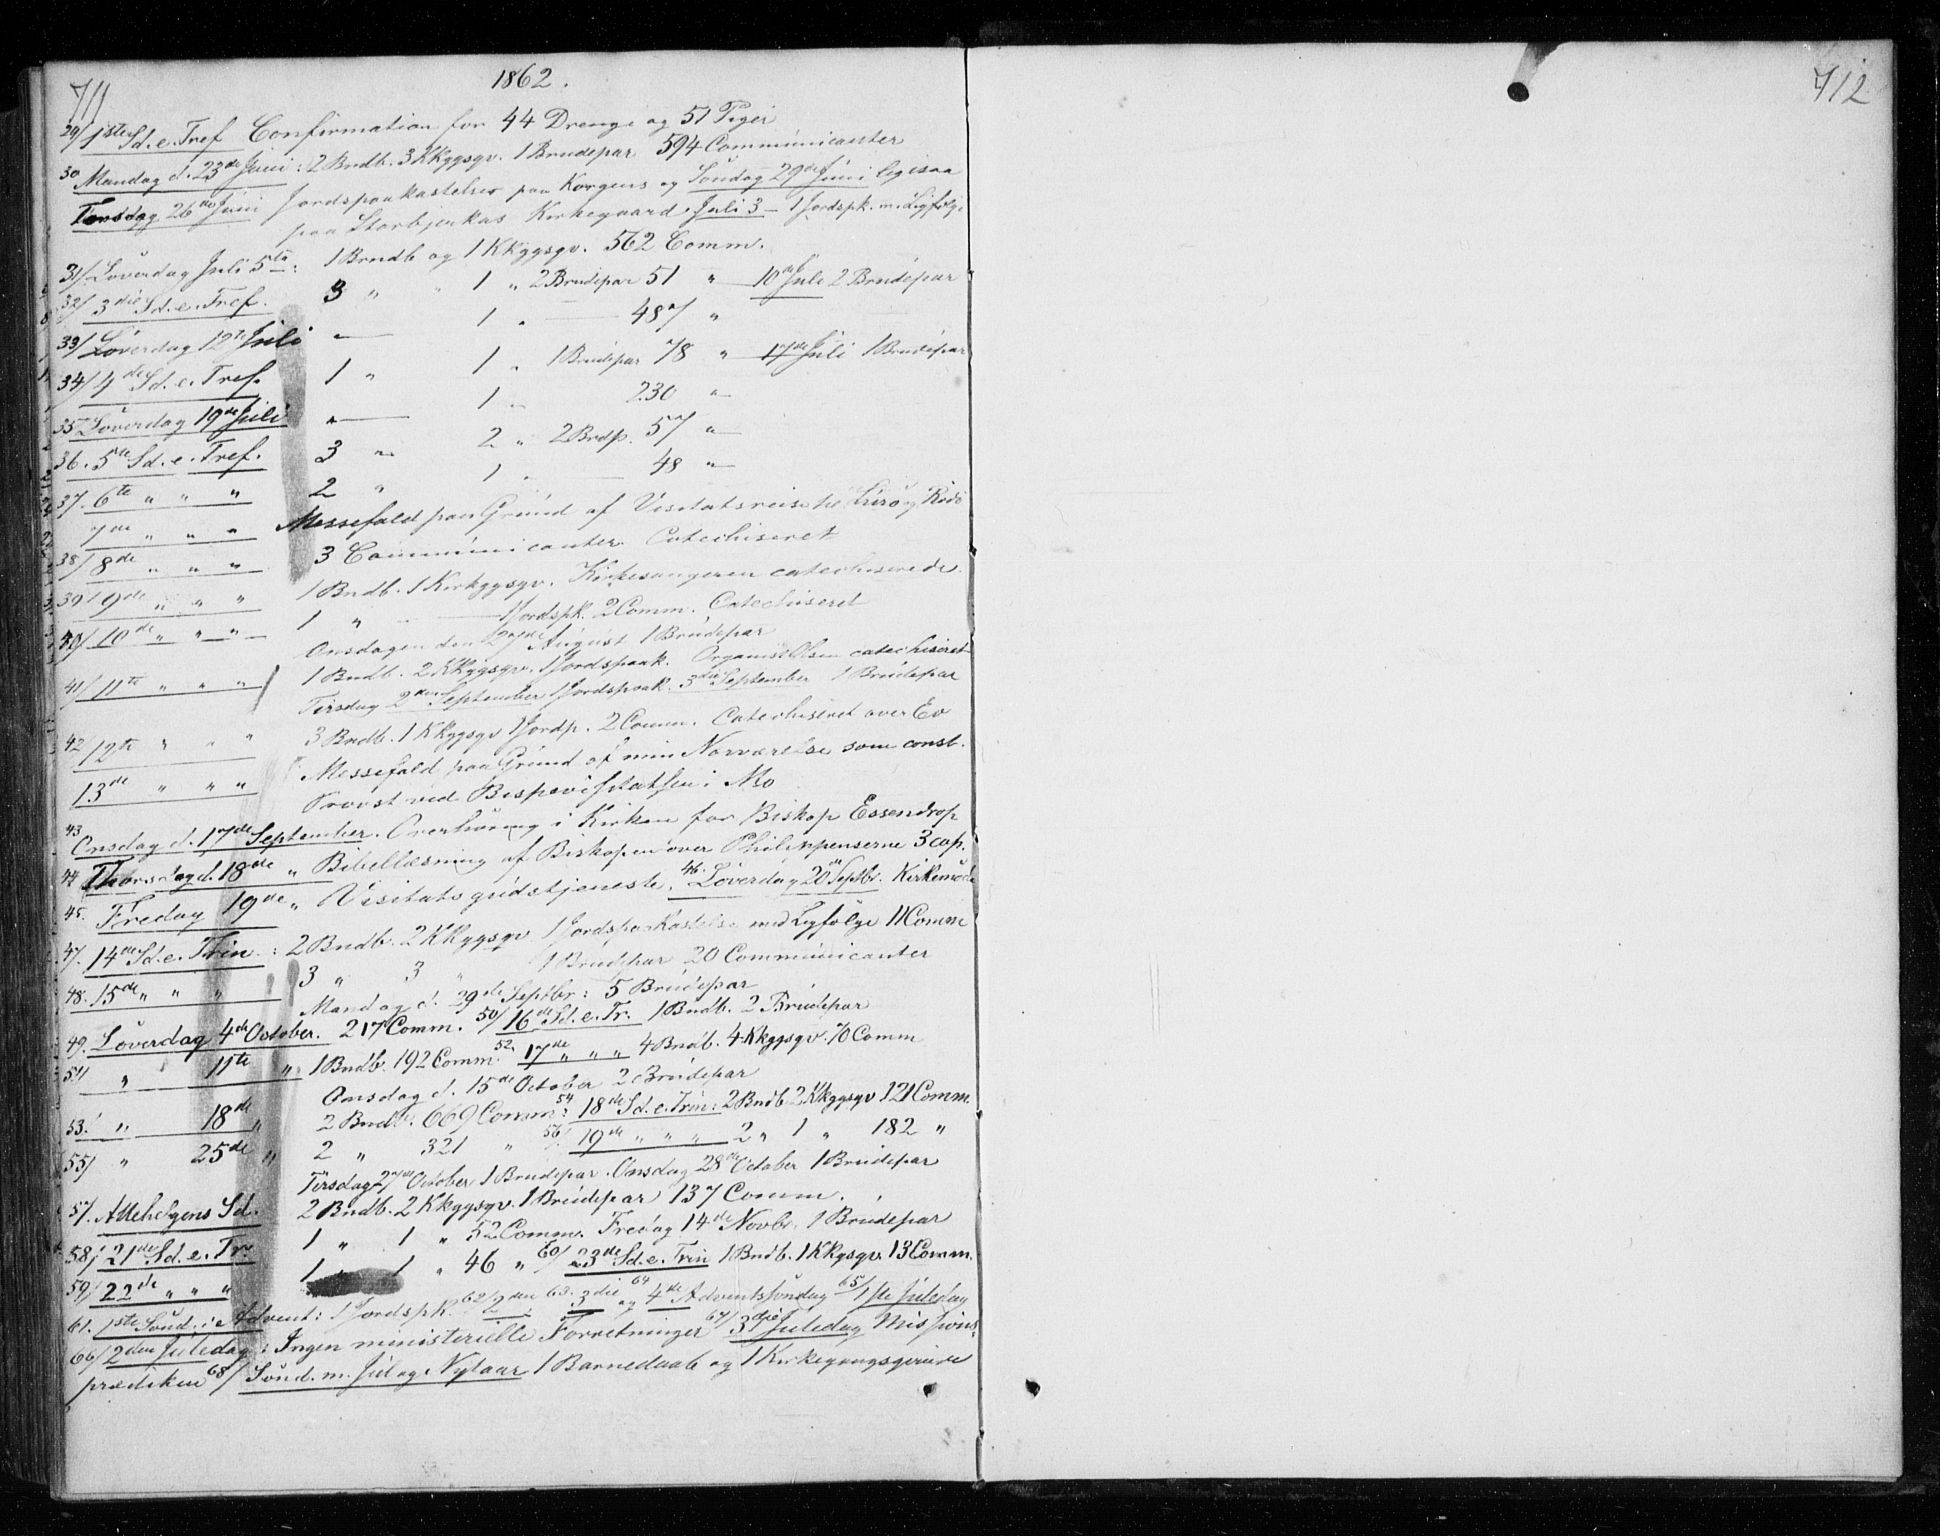 711
1862.
29/ 1ste Sd. e. Tref Confirmation for 44 Drenge og 51 Piger
30 Mandag d. 23de Juni: 2 Bndb. 3 Kkggsgv. 1 Brudepar 594 Communicanter
Torsdag 26de Juni Jordspaakastelser paa Korgens og Søndag 29de Juni ligesaa
paa Storbjerkas Kirkegaard. Juli 3 – 1 Jordspk. m. Ligfølge
31/ Løverdag Juli 5te: 1 Bndb og 1 Kkggsgv. 562 Comm.
32/ 3die Sd. e. Tref. 3 " " 1 " 2 Brudepar 51 " 10de Juli 2 Brudepar
33/ Løverdag 12te Juli " — 1 " — 487 "
34/ 4de Sd. e. Tref. 1 " 1 " 1 Brudepar 78 " 17de Juli 1 Brudepar
35 Løverdag 19de Juli " — 1 " 230 "
36. 5te Sd. e. Tref. 3 " 2 " 2 Brdp. 57 "
37. 6te " " " 2 " 1 " 48 "
7de " " " Messefald paa Grund af Visitatsreise til Lurø og Rødø
38/ 8de " " " 3 Communicanter. Catechiseret
39/ 9de " " " 1 Bndb. 1 Kirkggsgv. Kirkesangeren catechiserede.
40/ 10de " " " 1 " — 1 Jordspk. 2 Comm. Catechiseret
Onsdagen den 27de August 1 Brudepar
41/ 11te " " " 1 Bndb. 2 Kkggsgv. 1 Jordspaak. Organist Olsen catechiseret
Tirsdag 2den September 1 Jordspaak. 3die September 1 Brudepar
42 12te " " " 3 Bndb. 1 Kkggsgv 1 Jordp. 2 Comm. Catechiseret over Ev
13de " " " Messefald paa Grund af min Nærværelse som const.
Provst ved Bispevisitatsen i Mo
43 Onsdag d. 17de September. Overhøring i Kirken for Biskop Essendrop
44 Thorsdag d. 18de " Bibellæsning af Biskopen over Philippenserne 3 cap.
45. Fredag 19de " Visitatsgudstjeneste. 46. Løverdag 20de Septbr. Kirkemøde
47. 14de Sd. e. Trin.: 2 Bndb. 2 Kkggsgv 1 Jordspaakastelse med Ligfølge 11 Comm
48. 15de " " " 3 " 3 " 1 Brudepar 20 Communicanter
Mandag d. 29de Septbr: 5 Brudepar
49. Løverdag 4de October. 217 Comm. 50/ 16de Sd. e. Tr. 1 Bndb. 2 Brudepar
51/ " 11te " 1 Bndb. 192 Comm. 52. 17de " " " 4 Bndb. 4 Kkggsgv. 70 Comm
Onsdag d. 15de October 2 Brudepar
53. " 18de " 2 Bndb. 669 Comm: 54 18de Sd. e. Trin: 2 Bndb 2 Kkggsgv 121 Comm.
55/ " 25de " 2 " 321 " 56/ 19de " " " 2 " 1 " 182 "
Tirsdag 27de October 1 Brudepar. Onsdag 28de October 1 Brudepar
57. Allehelgens Sd. 2 Bndb. 2 Kkggsgv. 1 Brudepar 137 Comm.
58/ 21de Sd. e. Tr. 1 " 1 " 52 Comm. Fredag 14de Novbr. 1 Brudepar
59/ 22de " " " 1 " 1 " 46 " 60/ 23de Sd. e. Trin 1 Bndb. 1 Kkgsgv. 13 Comm.
61. 1ste Sønd. i Advent: 1 Jordspk. 62/ 2den 63. 3die og 64 4de Adventssøndag 65/ 1ste Juledag
66/ 2den Juledag: Ingen ministerielle Forretninger 67/ 3die Juledag Missions-
prædiken 68/ Sønd. m. Jul og Nytaar 1 Barnedaab og 1 Kirkegangsqvinde
712